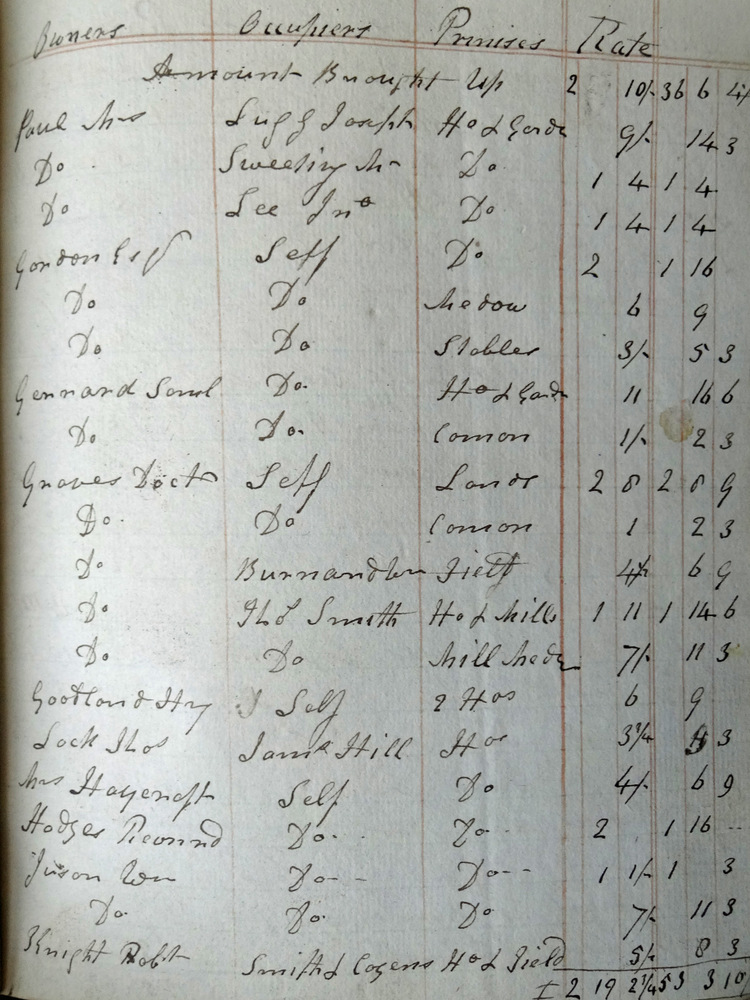 Owners Occupiers Premises Rate
Amount Brought Up 2 10/- 36 6 4½
Paul Mrs Sugg Joseph Ho & Garde 9/- 14 3
Do Sweeting Mr Do 1 4 1 4
Do Lee Jno Do 1 4 1 4
Gordon Esq Self Do 2 1 16
Do Do Medow 6 9
Do Do Stables 3/- 5 3
Gennard Saml Do Ho & Garde 11 16 6
Do Do Comon 1/- 2 3
Graves Doctr Self Lands 2 8 2 8 9
Do Do Comon 1 2 3
Do Field 4½ 6 9
Do Thos Smith Ho & Mills 1 11 1 14 6
Do Do Mill Medw 7/- 11 3
Gootland Hry Self 2 Hos 6 9
Lock Thos Jams Hill Hos 3 3
Mrs Haycroft Self Do 4/- 6 9
Hodges Do Do 2 1 16
Juson Wm Do Do 1 1/- 1 3
Do Do Do 7/- 11 3
Knight Robt Smith & Cozens Ho & Field 5/- 8 3
2 19 2¼ 53 3 10